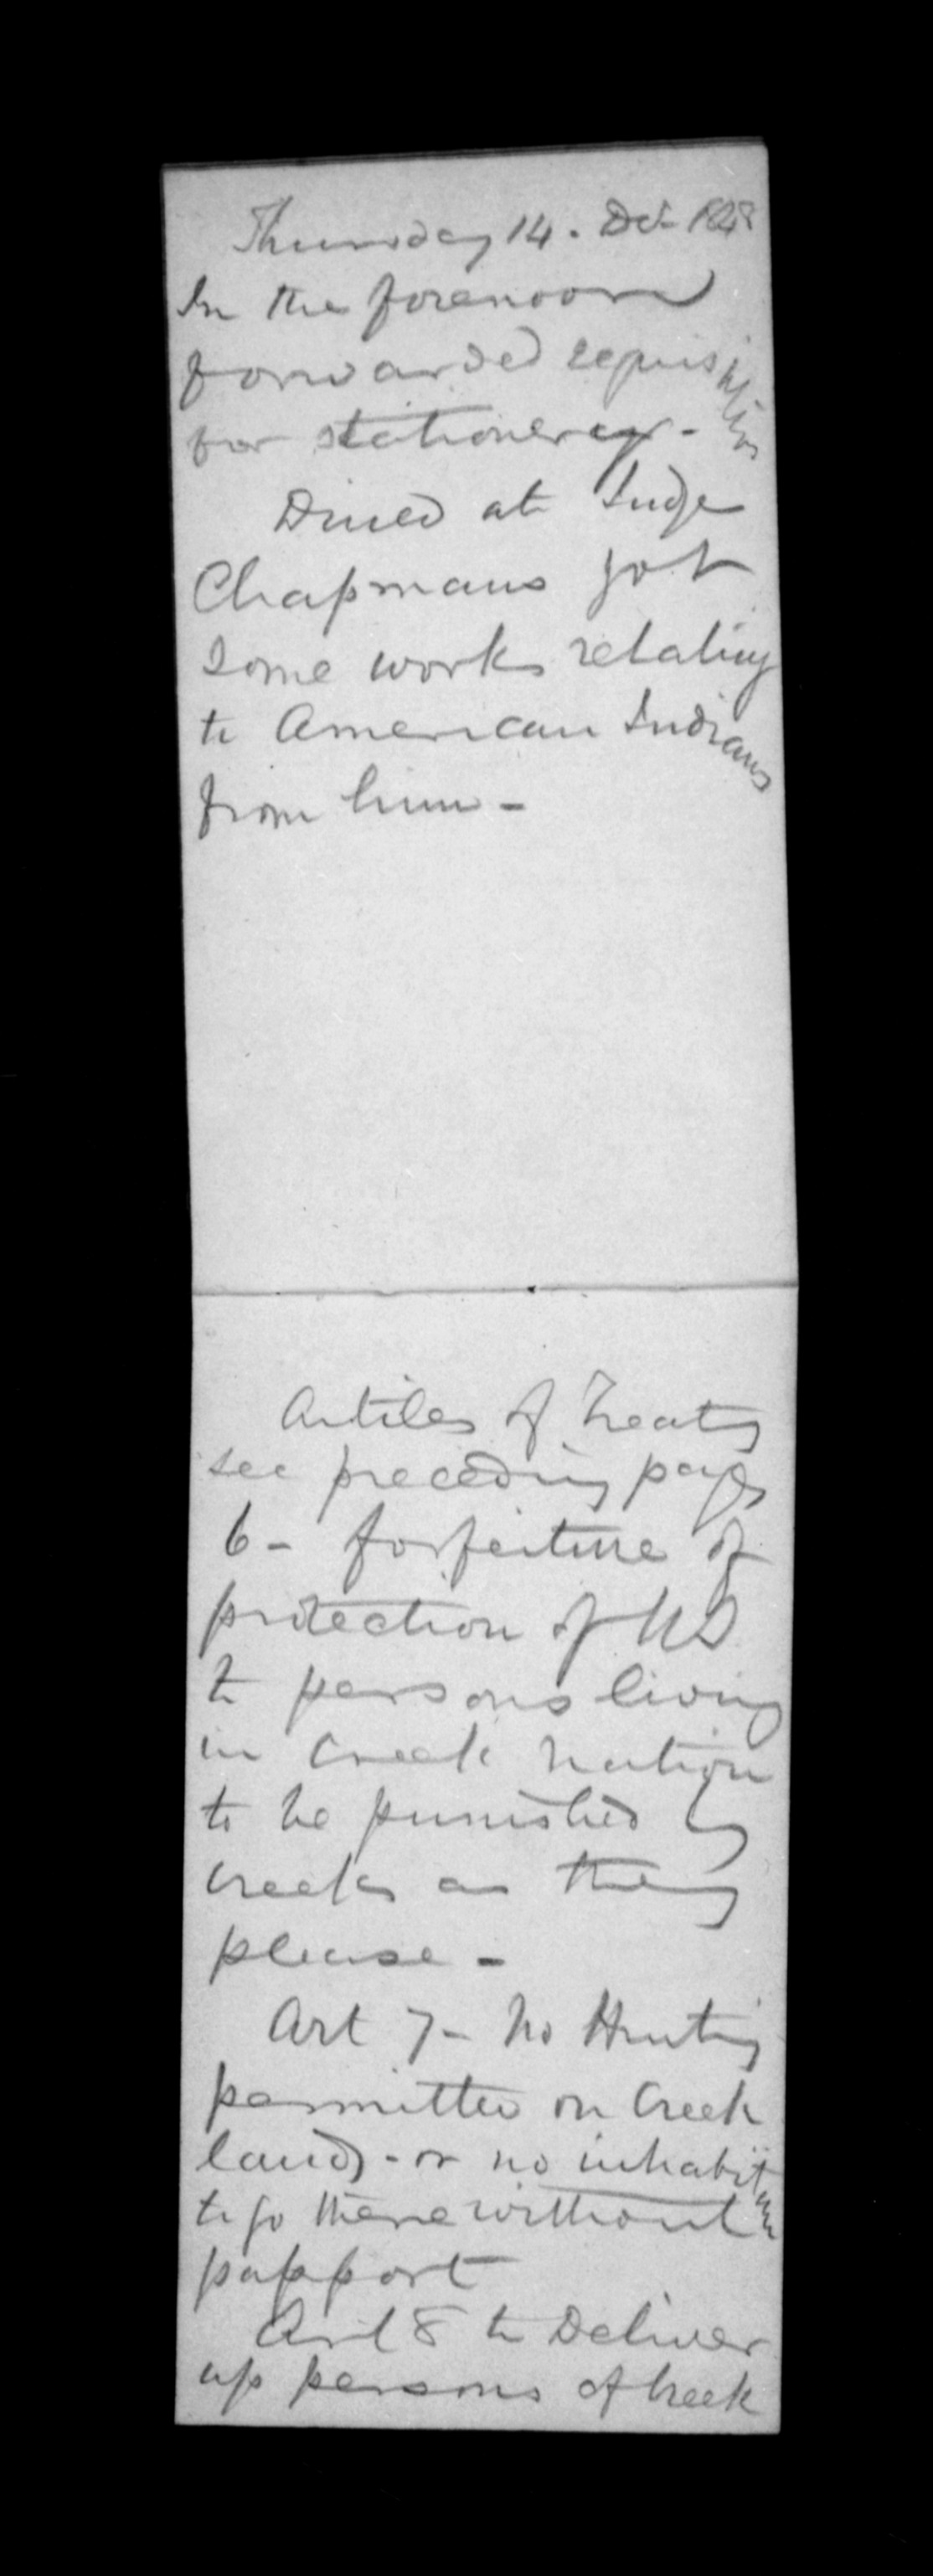 Thursday 14. Dec 1848
In the forenoon
forwarded requisition
for stationery -
Dined at Judge
Chapmans got
some works relating
to American Indians
from him -
Articles of Treaty
see preceding pages
6 - forfeiture of
protection of US
to persons living
in Creek nation
to be punished by
creeks as they
please -
Art 7 - No Hunting
permitted on Creek
lands - or no inhabitant
to go there without
passport
Art 8 to Deliver
up persons of Creek